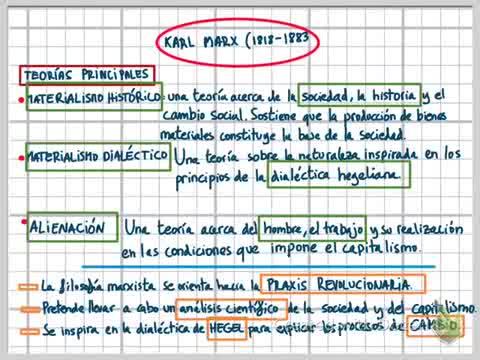 KARL MARX (1818-1883
TEORÍAS PRINCIPALES
MATERIALISMO HISTÓRICO: una teoría acerca de la sociedad, la historia y el
cambio social. Sostiene que la producción de bienes
materiales constituye la base de la sociedad.
MATERIALISMO DIALÉCTICO Una teoría sobre la naturaleza inspirada en los
principios de la dialéctica hegeliana.
ALIENACIÓN Una teoría acerca del hombre, el trabajo y su realización
en las condiciones que impone el capitalismo.
La filosofía marxista se orienta hacia la PRAXIS REVOLUCIONARIA.
Pretende llevar a cabo un análisis científico de la sociedad y del capitalismo.
Se inspira en la dialéctica de HEGEL para explicar los procesos de CAMBIO.